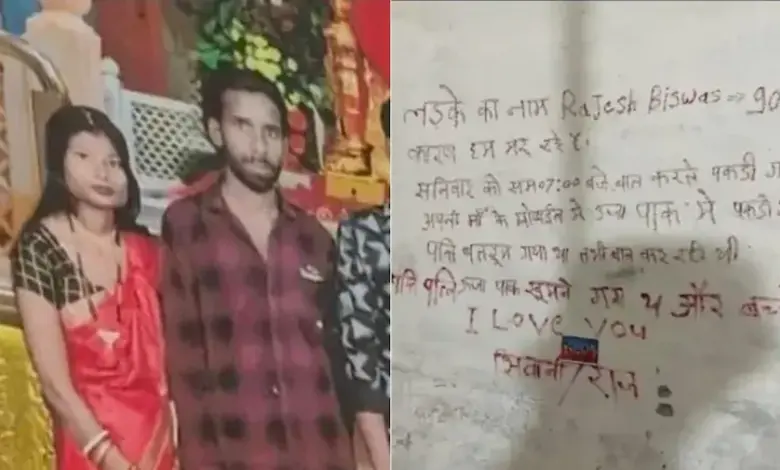 लड़के का नाम Rajesh Biswas ⇒ 90
कारण हम मर रहे है.
सनिवार को सम 07:00 बजे बात करते पकडी
अपनी माँ के मोबाईल मे ऊर्जा पाक मे पकडी
पति बातरूम गया था तभी बात कर रही थी
पति पत्नि ऊर्जा पाक घूमने गए थे और
I LOVE YOU
शिवानी/राज